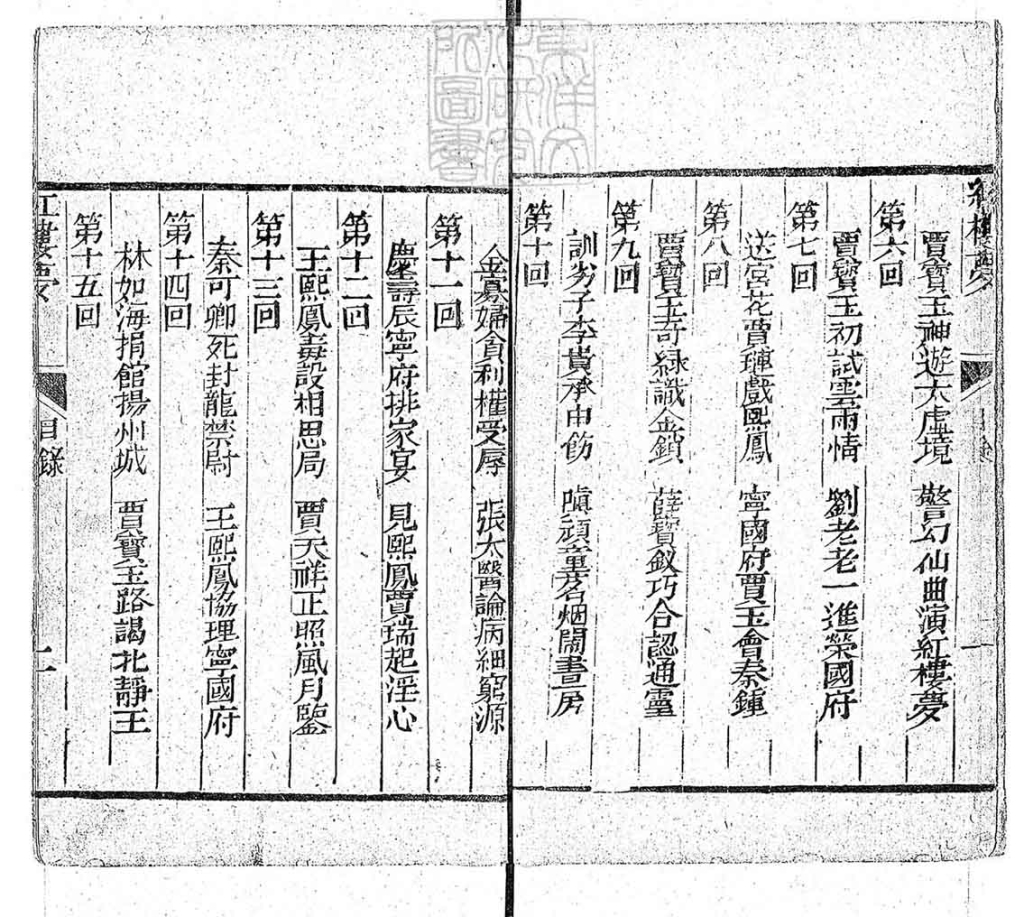 紅樓夢
賈寶玉神遊太虛境 警幻仙曲演紅樓夢
第六回
賈寶玉初試雲雨情 劉老老一進榮國府
第七回
送宮花賈璉戲熙鳳 寧國府賈玉會秦鍾
第八回
賈寶玉奇緣識金鎖 薛寶釵巧合認通靈
第九回
訓劣子李貴承申飭 嗔頑童茗烟鬧書房
第十回
金寡婦貪利權受辱 張太醫論病細窮源
第十一回
慶壽辰寧府排家宴 見熙鳳賈瑞起淫心
第十二回
王熙鳳毒設相思局 賈天祥正照風月鑒
第十三回
秦可卿死封龍禁尉 王熙鳳協理寧國府
第十四回
林如海捐館揚州城 賈寳玉路謁北靜王
第十五回
紅樓夢 目錄 二